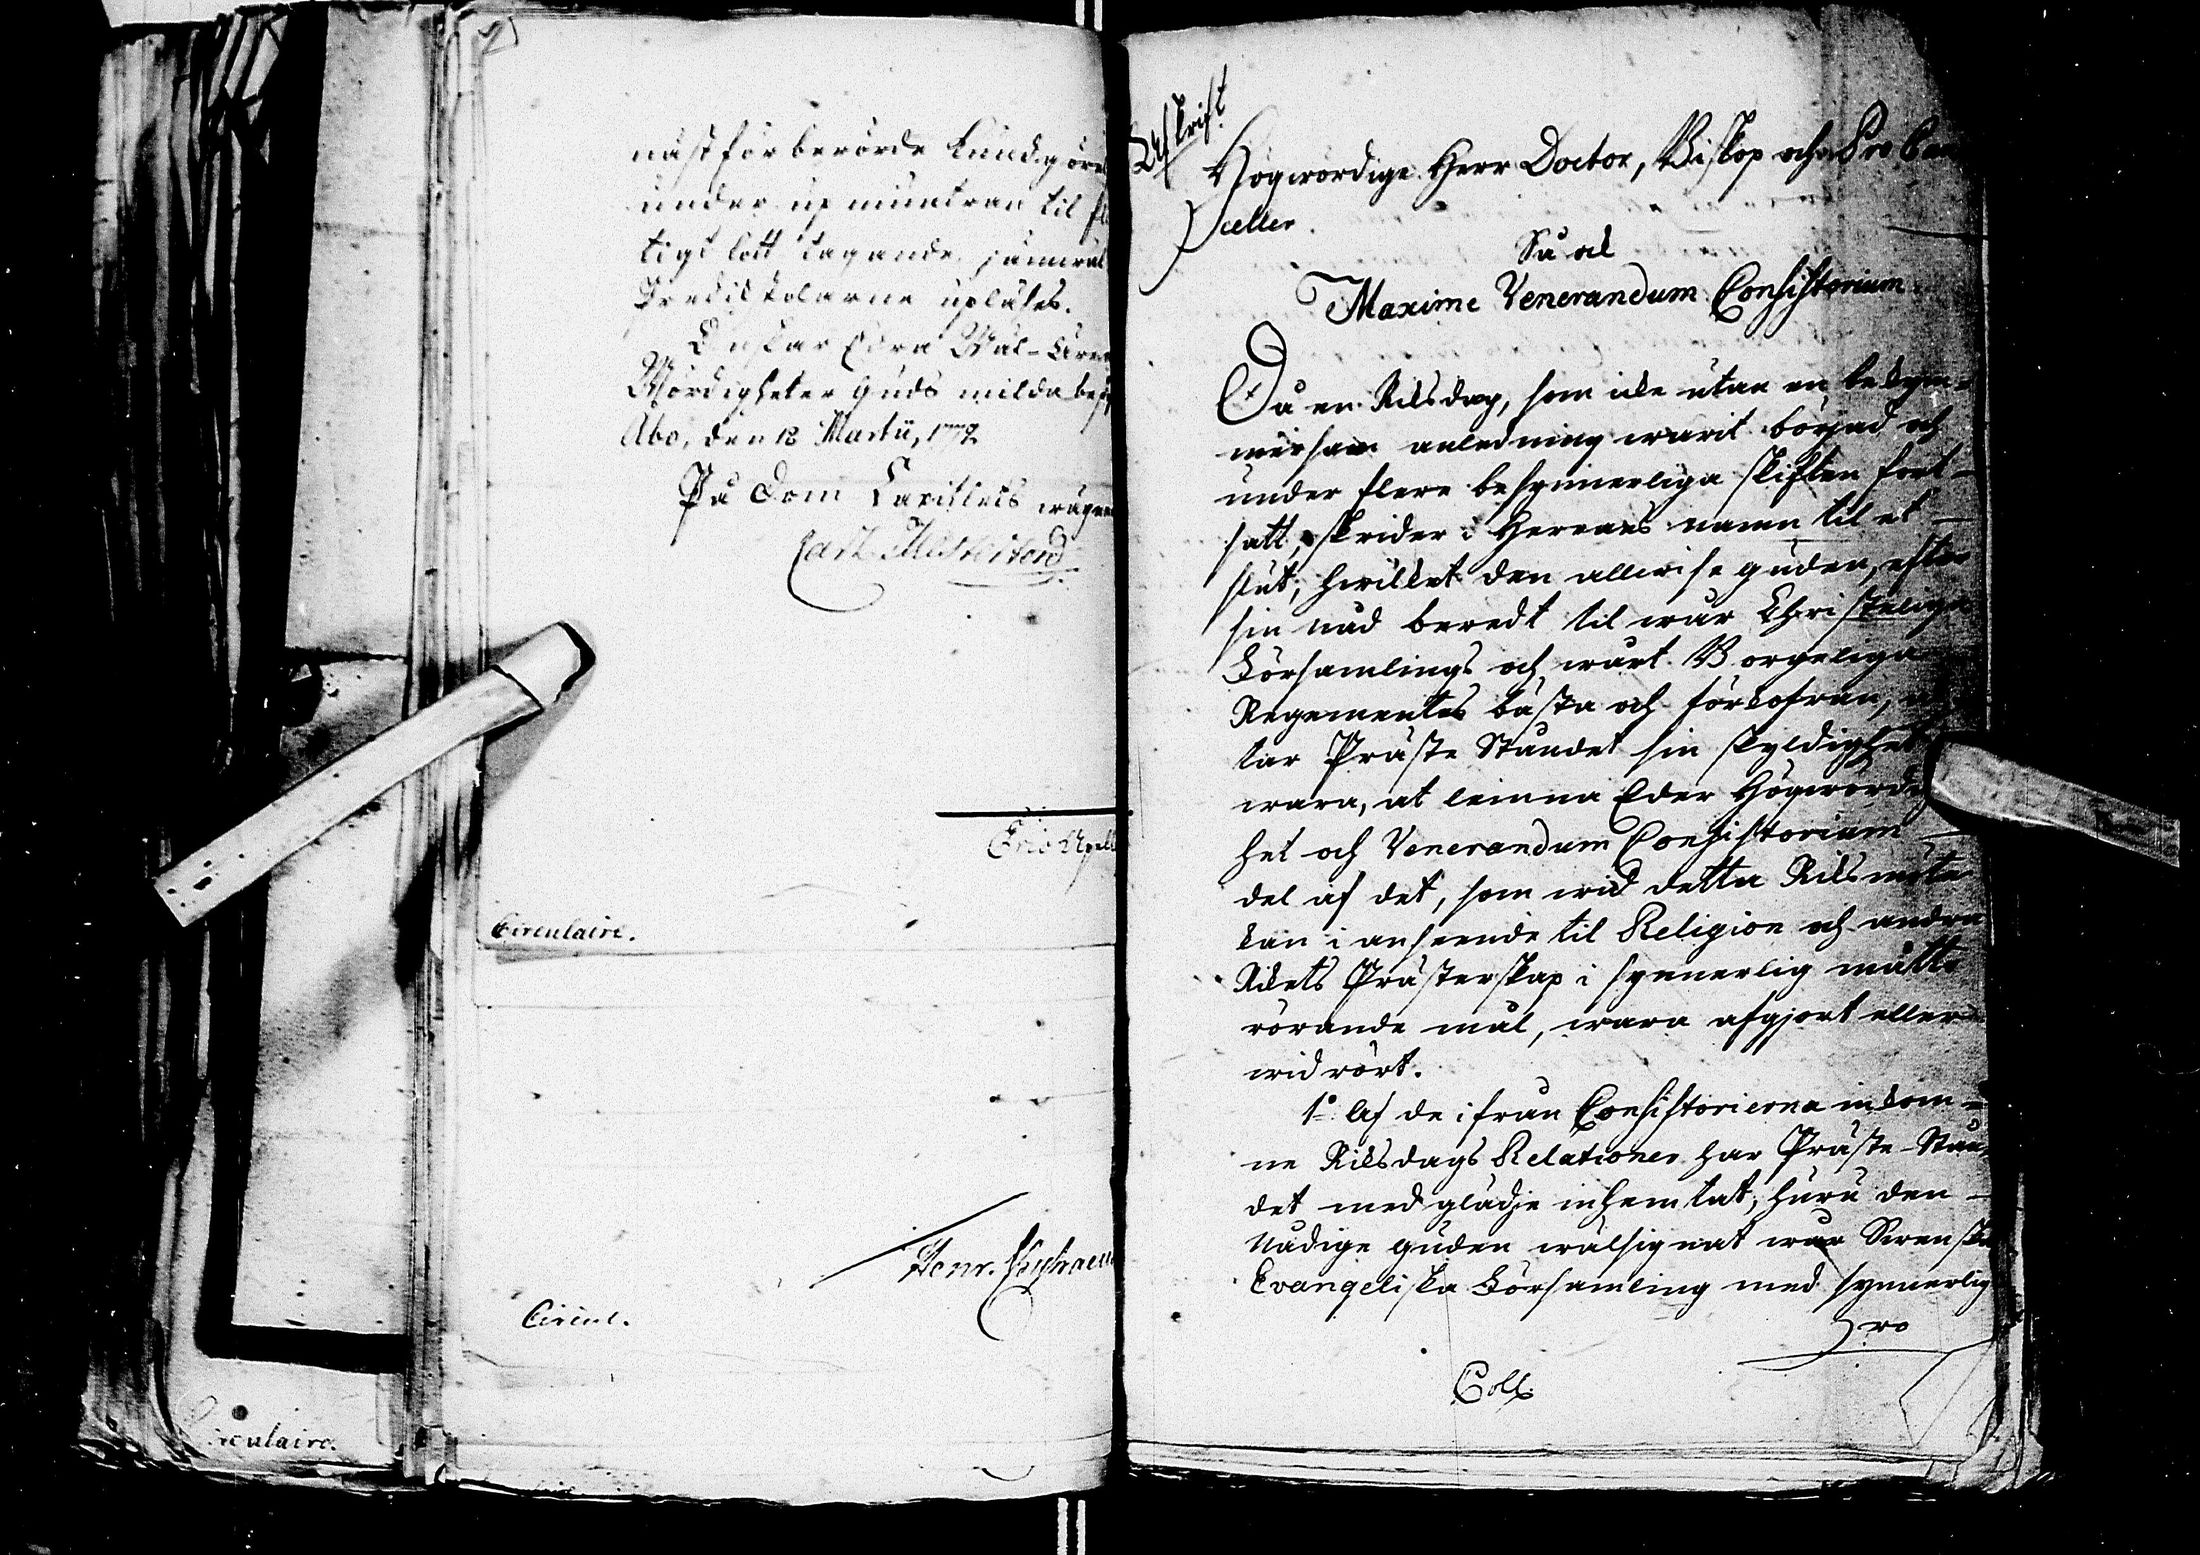 näst förberörde kundgöre
under upmuntran til fl
tigt lott tagande jämwäl
Predikstolarne upläses.
Önskar Edra Wäl-Ärew
Wördigheter Guds milda besk
Åbo, den 18 Martii, 1772
På Dom Capitlets wägnar
Circulaire.
Circul.
Circulaire.
Afskrift
Högwördige Herr Doctor, Biskop och Pro Can
celler.
Så ock
Maxime Venerandum Consistorium
Då en Riksdag, som icke utan en bekym-
mersam anledning warit börjad och
under flere besynnerliga skiften fort-
satt, skrider i Herrans namn til et
slut, hwilket den allwise guden, efter
sin nåd beredt til wår Christeliga
Församlings och wårt Borgerliga
Regementes bästa och förkofran,
tar Präste Ståndet sin skyldighet
wara, at lemna Eder Högwördig
het och Venerandum Consistorium
del af det, som wid detta Riksmöte
kan i anseende til Religion och andra
Rikets Prästerskap i synnerlig måtto
rörande mål, wara afgjort eller
widrört.
1:o Af de ifrån Consistorierna inkom-
ne Riksdags Relationer har Präste-Stån
det med glädje inhemtat, huru den
Nådige guden wälsignat wår Swenska
Evangeliska Församling med synnerlig
ro
Coll.